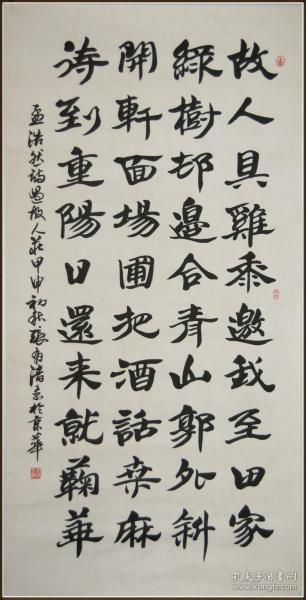 故人具雞黍邀我至田家
綠樹邨邊合青山郭外斜
開軒面場圃把酒話桑麻
待到重陽日還来就菊華
孟浩然詩過故人莊甲申初秋張有清書於京華
孔夫子旧书网